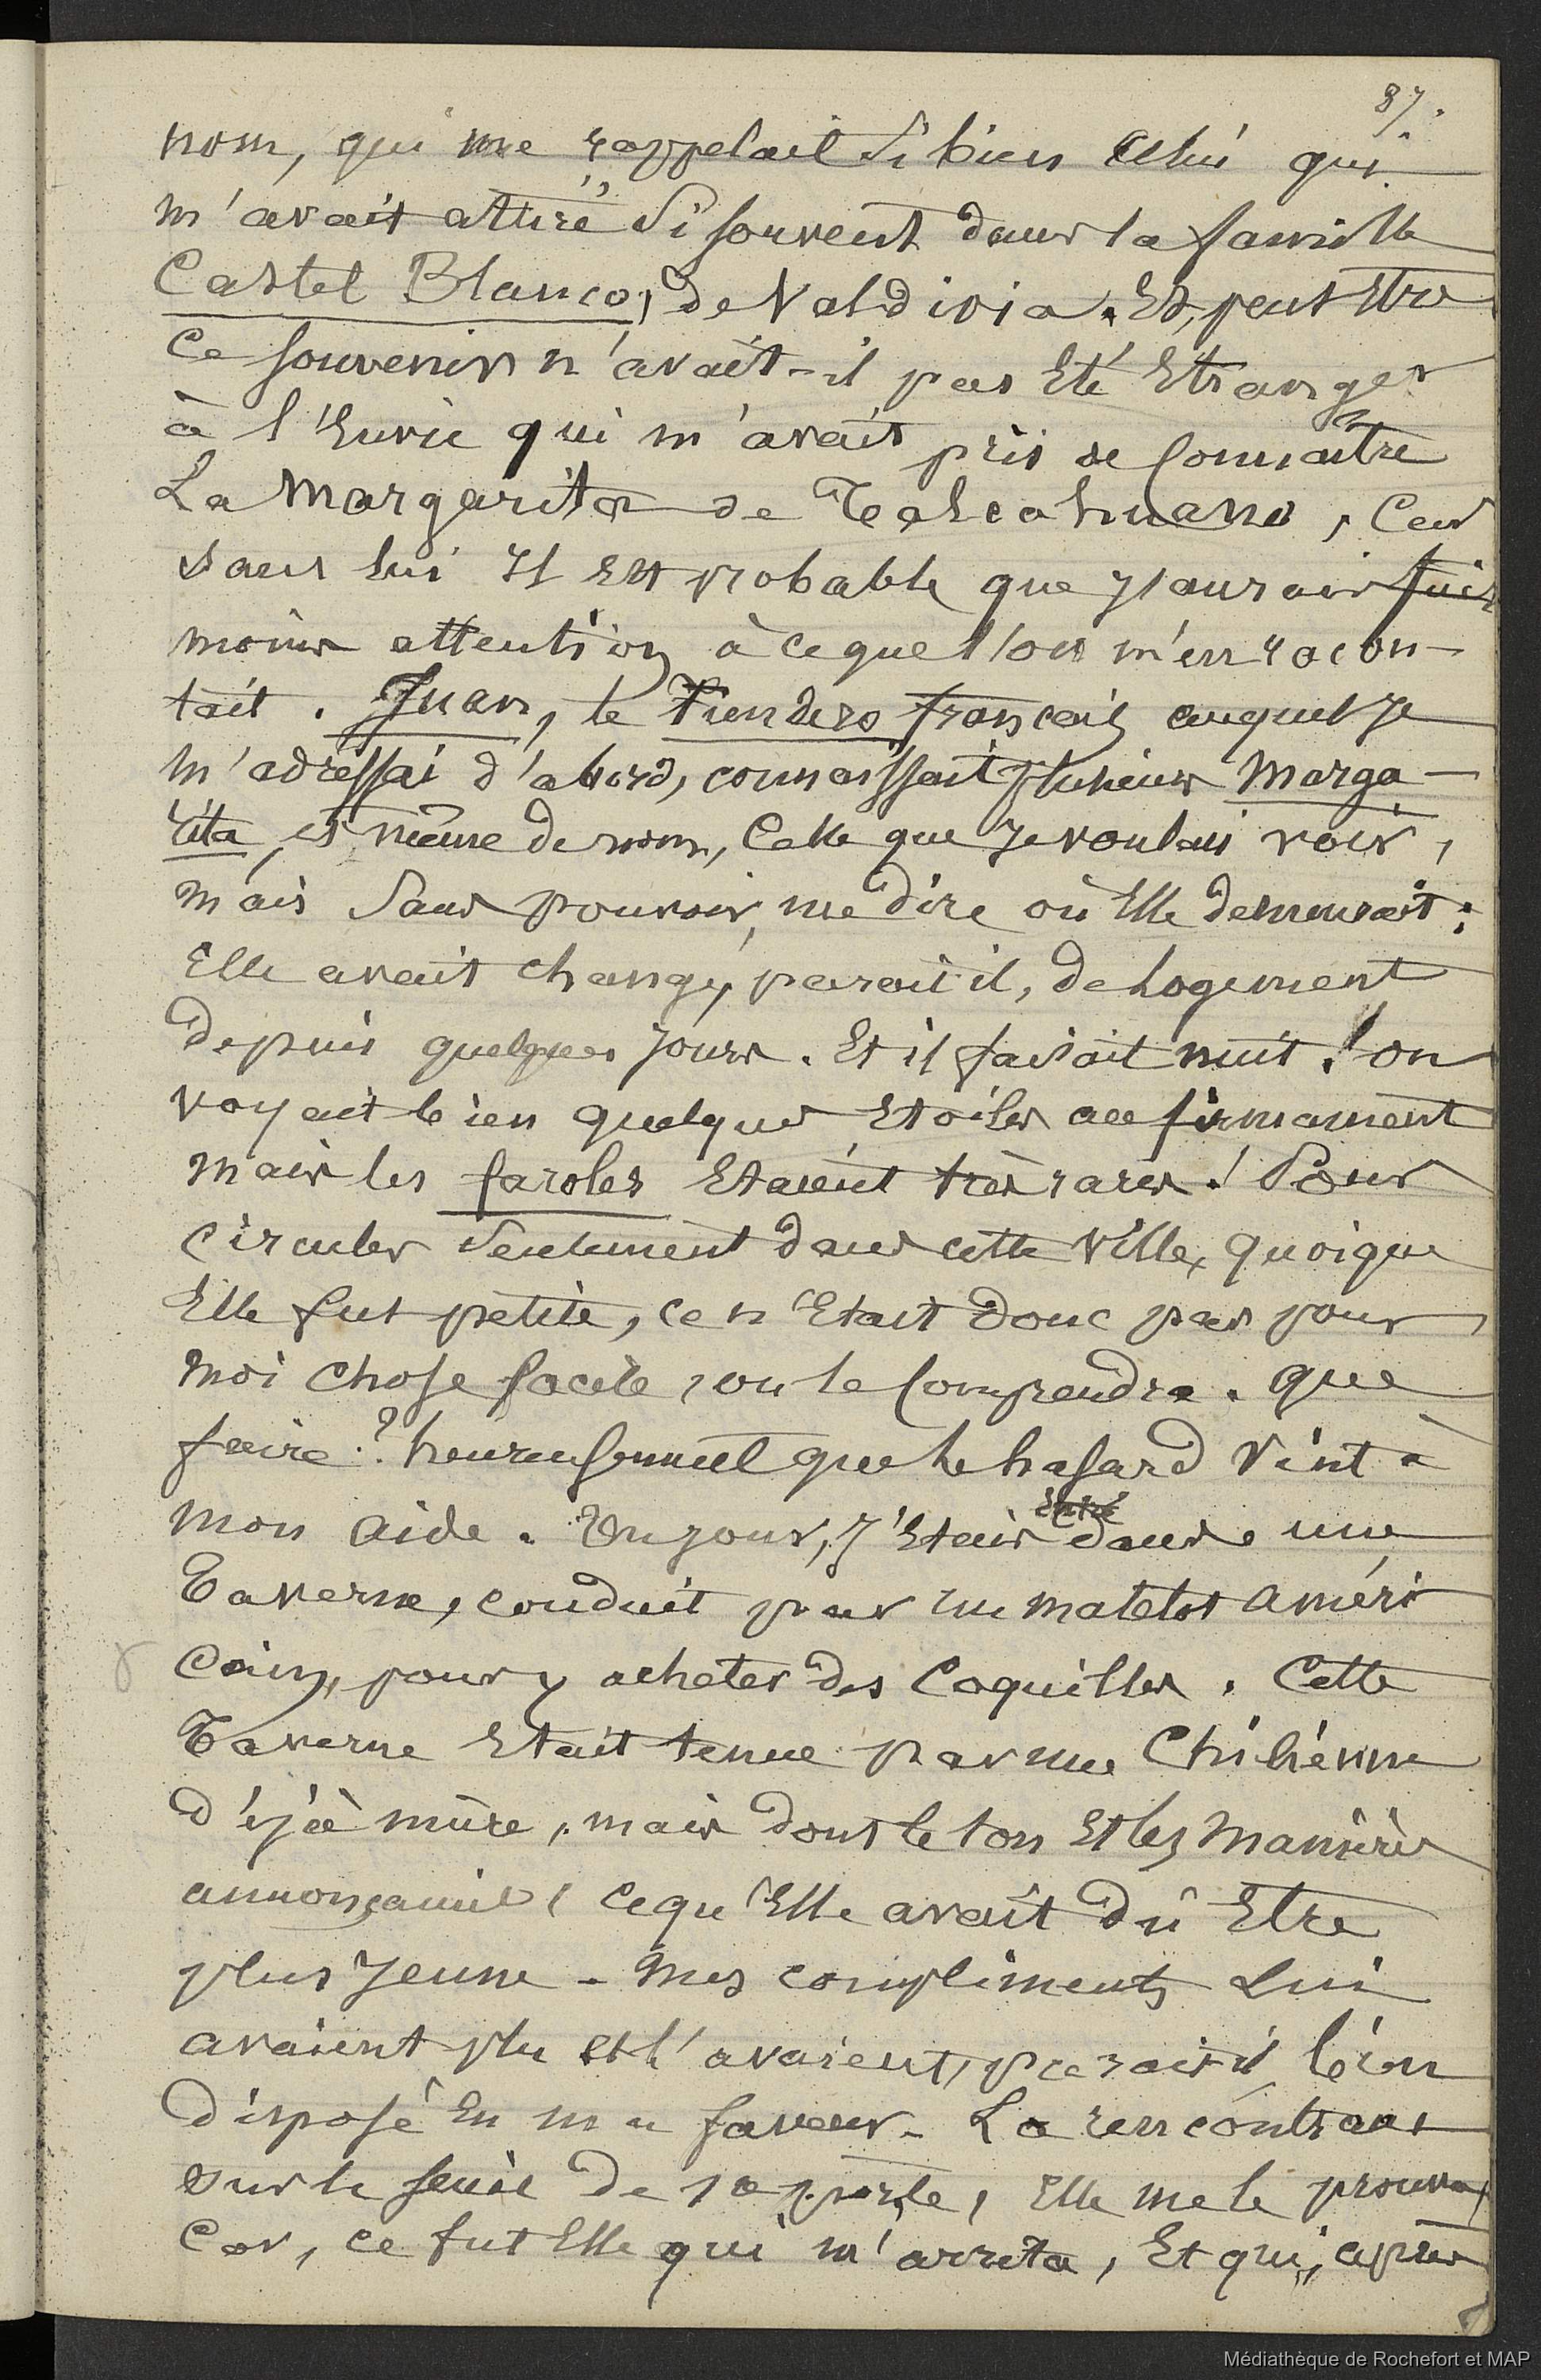 87.
nom, qui me rappelait si bien celui qui
m'avait attiré si souvent dans la famille
Castel Blanco, de Valdivia. Et, peut Etre
ce souvenir n'avait-il pas Eté Etranger
à l'Envie qui m'avait pris de Connaître
La Margarita de Talcahuano, Car
sans lui Il Est probable que J'aurais fait
moins attention à ce que l'on m'en racon-
tait. Juan, le Tiendero français auquel Je
m'adressai d'abord, connaissait plusieurs Marga-
rita, et même de nom, Celle que Je voulais voir,
mais sans pouvoir, me dire où Elle demeurait:
Elle avait changé, parait il, de Logement
depuis quelques Jours. Et il faisait nuit! on
voyait bien quelques Etoiles au firmament
mais les faroles Etaient très rares! Pour
circuler seulement dans cette Ville, quoique
Elle fut petite, ce n'Etait donc pas pour
moi chose facile, on le Comprendra. que
faire? heureusement que le hasard Vint à
mon aide. Un jour, J'Etais dans une
Taverne, conduit par un matelot Améri
cain, pour y acheter des Coquilles. Cette
Taverne Etait tenue par une Chilienne
déjà mûre, mais dont le ton Et les manières
annonçaient ce qu'Elle avait dû Etre
plus Jeune - Mes compliments Lui
avaient plu et l'avaient, parait il bien
disposé En ma faveur - La rencontrant
sur le seuil de sa porte, Elle me le prouva,
Car, ce fut Elle qui m'arrêta, Et qui, après
Médiathèque de Rochefort et MAP